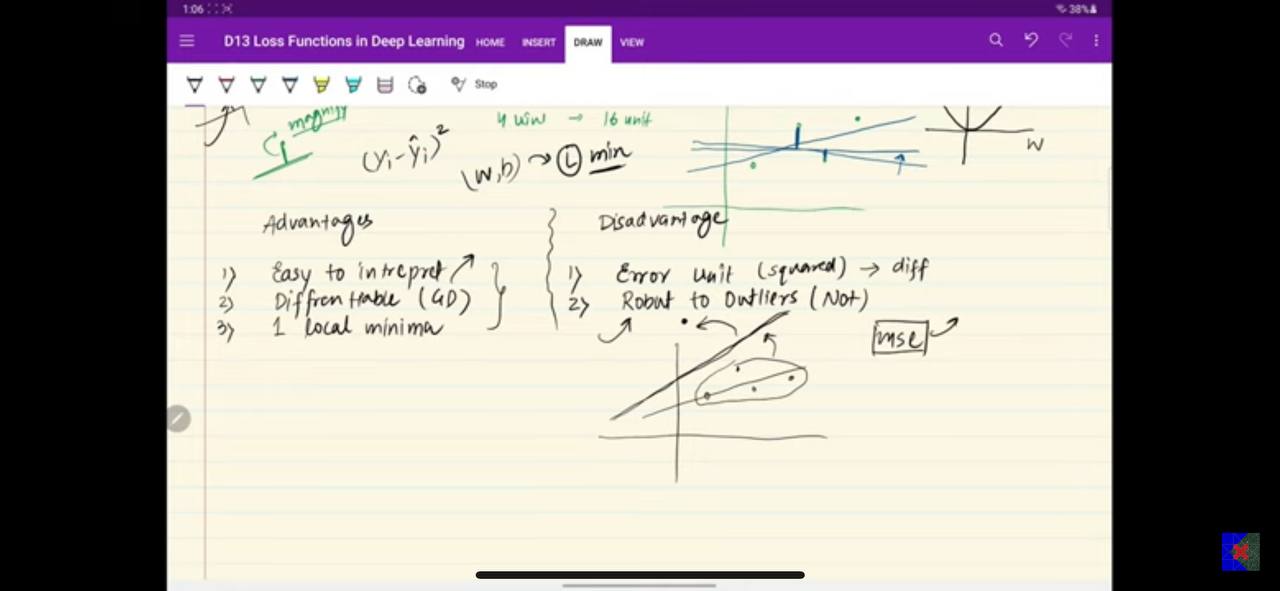 1:06
38%
D13 Loss Functions in Deep Learning HOME INSERT DRAW VIEW
Stop
magnify
4 unit → 16 unit
(yi-ŷi)²
(w,b) → L min
W
Advantages
Disadvantage
1) Easy to intrepret
2) Diffrentiable (GD)
3) 1 local minima
1) Error unit (squared) → diff
2) Robust to Outliers (Not)
mse